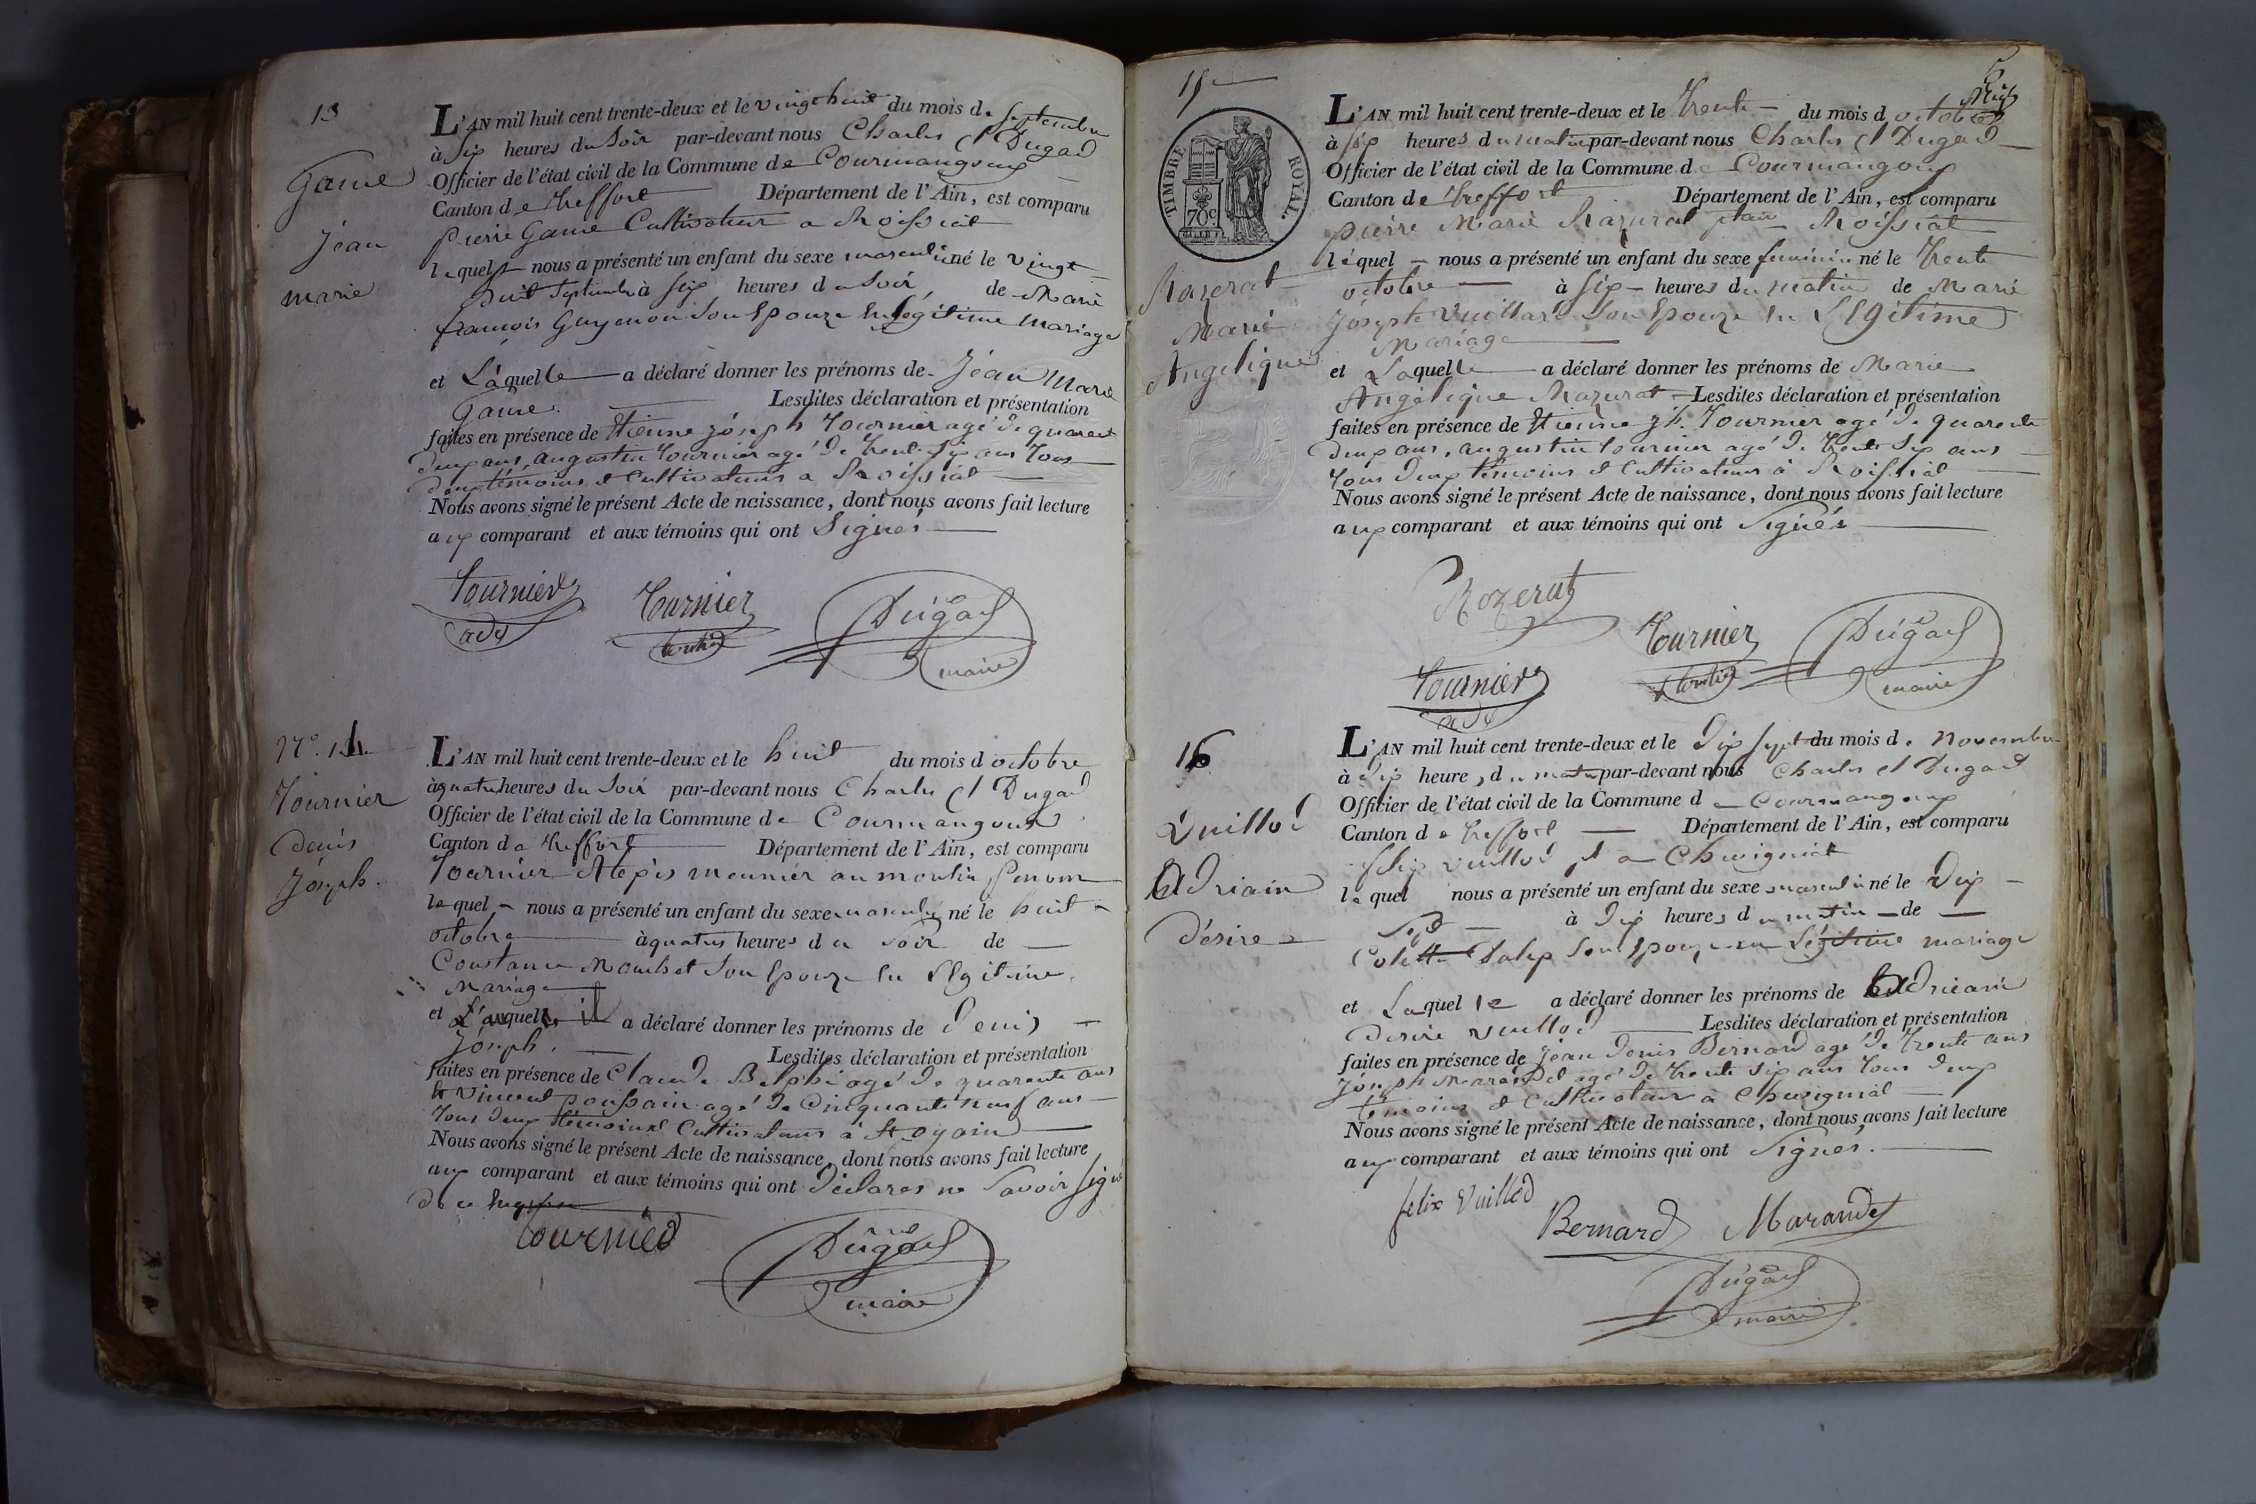 13
Game
Jean
marie
L'AN mil huit cent trente-deux et le vingt huit du mois de Septembre
à six heures du Soir par-devant nous Charles Cl Dugad
Officier de l'état civil de la Commune de Courmangoux
Canton de treffort Département de l'Ain, est comparu
pierre Game Cultivateur a Roissiat
lequel nous a présenté un enfant du sexe masculin né le vingt
huit Septembre à six heures du Soir de Marie
françois Guyenon Son Epouze En Légitime mariage
et Laquelle a déclaré donner les prénoms de Jean Marie
Game. Lesdites déclaration et présentation
faites en présence de Etienne joseph Tournier agé de quarent
deux ans, augustin tournier agé de trente Six ans tous
deux témoins et Cultivateurs a Roissiat
Nous avons signé le présent Acte de naissance, dont nous avons fait lecture
aux comparant et aux témoins qui ont Signés
tournier
adj
tournier
Dugad
maire
N° 14
Tournier
Denis
Joseph.
L'AN mil huit cent trente-deux et le huit du mois d octobre
à quatre heures du Soir par-devant nous Charles Cl Dugad
Officier de l'état civil de la Commune de Courmangoux
Canton de treffort Département de l'Ain, est comparu
Tournier Alexis meunier au moulin
lequel nous a présenté un enfant du sexe masculin né le huit
octobre à quatre heures du soir de
Constance Son Epouze En Légitime
Mariage
et Laquelle il a déclaré donner les prénoms de Denis
Joseph. Lesdites déclaration et présentation
faites en présence de Claude agé de quarente ans
et vincent poussain agé de Cinquante neuf ans
tous deux témoins et Cultivateurs à St oyain
Nous avons signé le présent Acte de naissance, dont nous avons fait lecture
aux comparant et aux témoins qui ont Déclarés ne Savoir signé
de ce
tournier
Dugad
maire
15
TIMBRE ROYAL.
70 c
Razurat
Marie
Angelique
L'AN mil huit cent trente-deux et le trente du mois d octobre
à six heures du matin par-devant nous Charles Cl Dugad
Officier de l'état civil de la Commune de Courmangoux
Canton de treffort Département de l'Ain, est comparu
pierre Marie Razurat Roissiat
lequel nous a présenté un enfant du sexe feminin né le trente
octobre à six heures du matin de Marie
Joseph vuillard Son Epouze En Légitime
Mariage
et Laquelle a déclaré donner les prénoms de Marie
Angelique Razurat Lesdites déclaration et présentation
faites en présence de Etienne jh. Tournier agé de quarente
deux ans, augustin tournier agé de trente six ans
tous deux témoins et Cultivateurs à Roissiat
Nous avons signé le présent Acte de naissance, dont nous avons fait lecture
aux comparant et aux témoins qui ont Signés
Rozerat
tournier
tournier
adj
Dugad
maire
16
Vuillod
Adriain
désire
L'AN mil huit cent trente-deux et le dix sept du mois de novembre
à dix heures du matin par-devant nous Charles Cl Dugad
Officier de l'état civil de la Commune de Courmangoux
Canton de treffort Département de l'Ain, est comparu
felix vuillod a Chevigniat
lequel nous a présenté un enfant du sexe masculin né le dix
sept à dix heures du matin de
Colette Son Epouze en Légitime mariage
et Laquelle a déclaré donner les prénoms de Adriain
desire vuillod Lesdites déclaration et présentation
faites en présence de jean denis Bernard agé de trente ans
joseph Marandet agé de trente six ans tous deux
témoins et Cultivateurs à Chevigniat
Nous avons signé le présent Acte de naissance, dont nous avons fait lecture
aux comparant et aux témoins qui ont Signés.
felix Vuillod
Bernard
Marandet
Dugad
maire